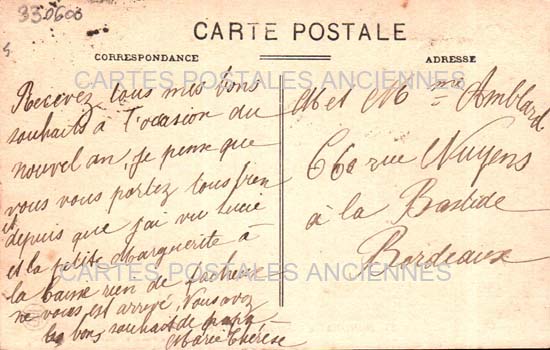 330600
CARTE POSTALE
CORRESPONDANCE
ADRESSE
CARTES POSTALES ANCIENNES
Recevez tous mes bons
souhaits à l'occasion du
nouvel an, je pense que
vous vous portez tous bien
et
depuis que j'ai vu Lucie
et la petite Marguerite à
la rien de facheux
ne vous est arrivé, Vous avez
les bons souhait de papa
Marie Thérèse
M et Mme Amblard
66 rue Nuyens
à la Bastide
Bordeaux
CARTES POSTALES ANCIENNES